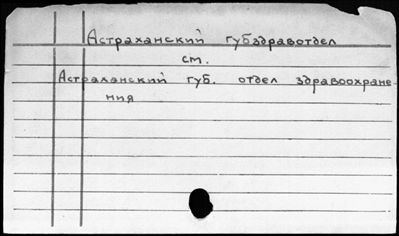 Астраханский губздравотдел
см.
Астраханский губ. отдел здравоохране
ния